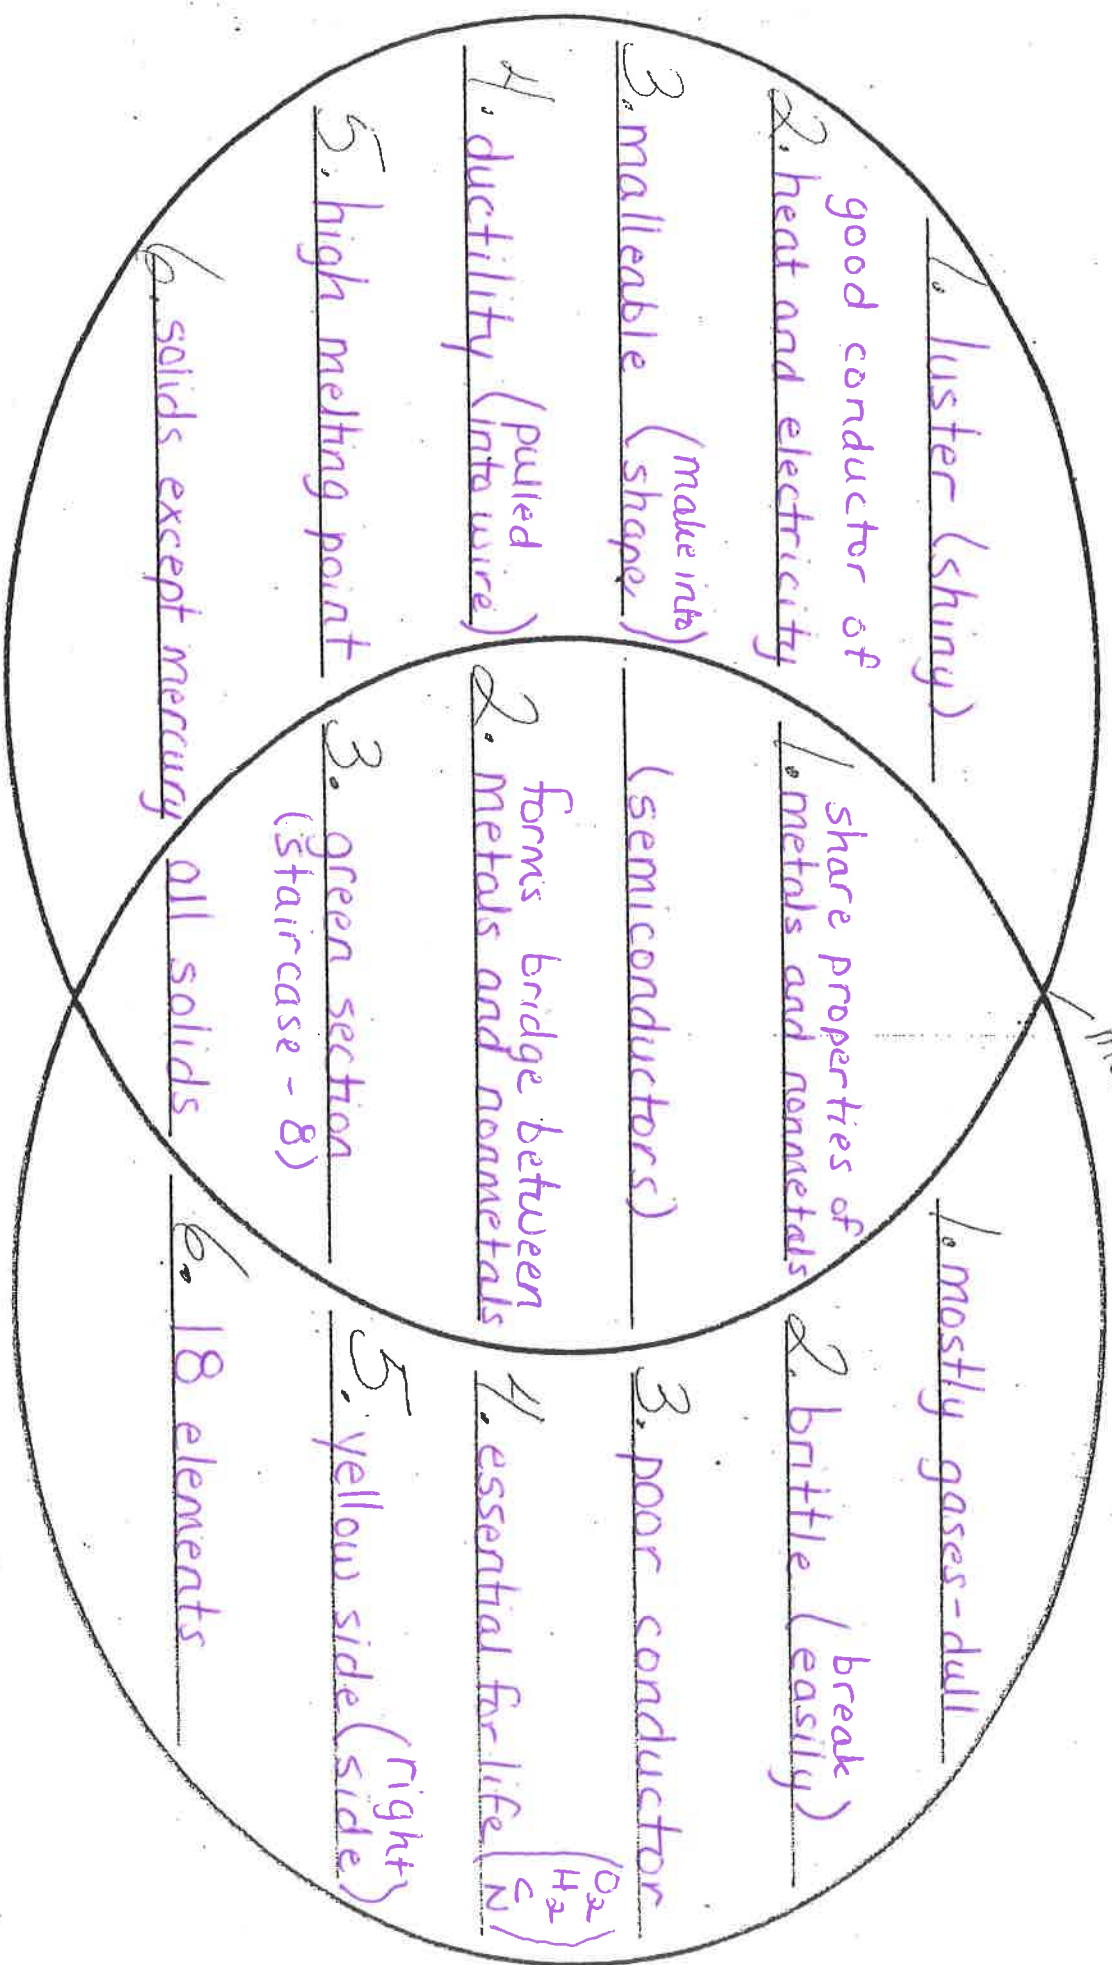 1. luster (shiny)
good conductor of
2. heat and electricity
3. malleable (make into
shape)
4. ductility (pulled
into wire)
5. high melting point
6. solids except mercury
share properties of
1. metals and nonmetals
(semiconductors)
forms bridge between
2. metals and nonmetals
3. green section
(staircase - 8)
all solids
1. mostly gases-dull
2. brittle (break
easily)
3. poor conductor
4. essential for life (O2
H2
C
N)
5. yellow side (right
side)
6. 18 elements